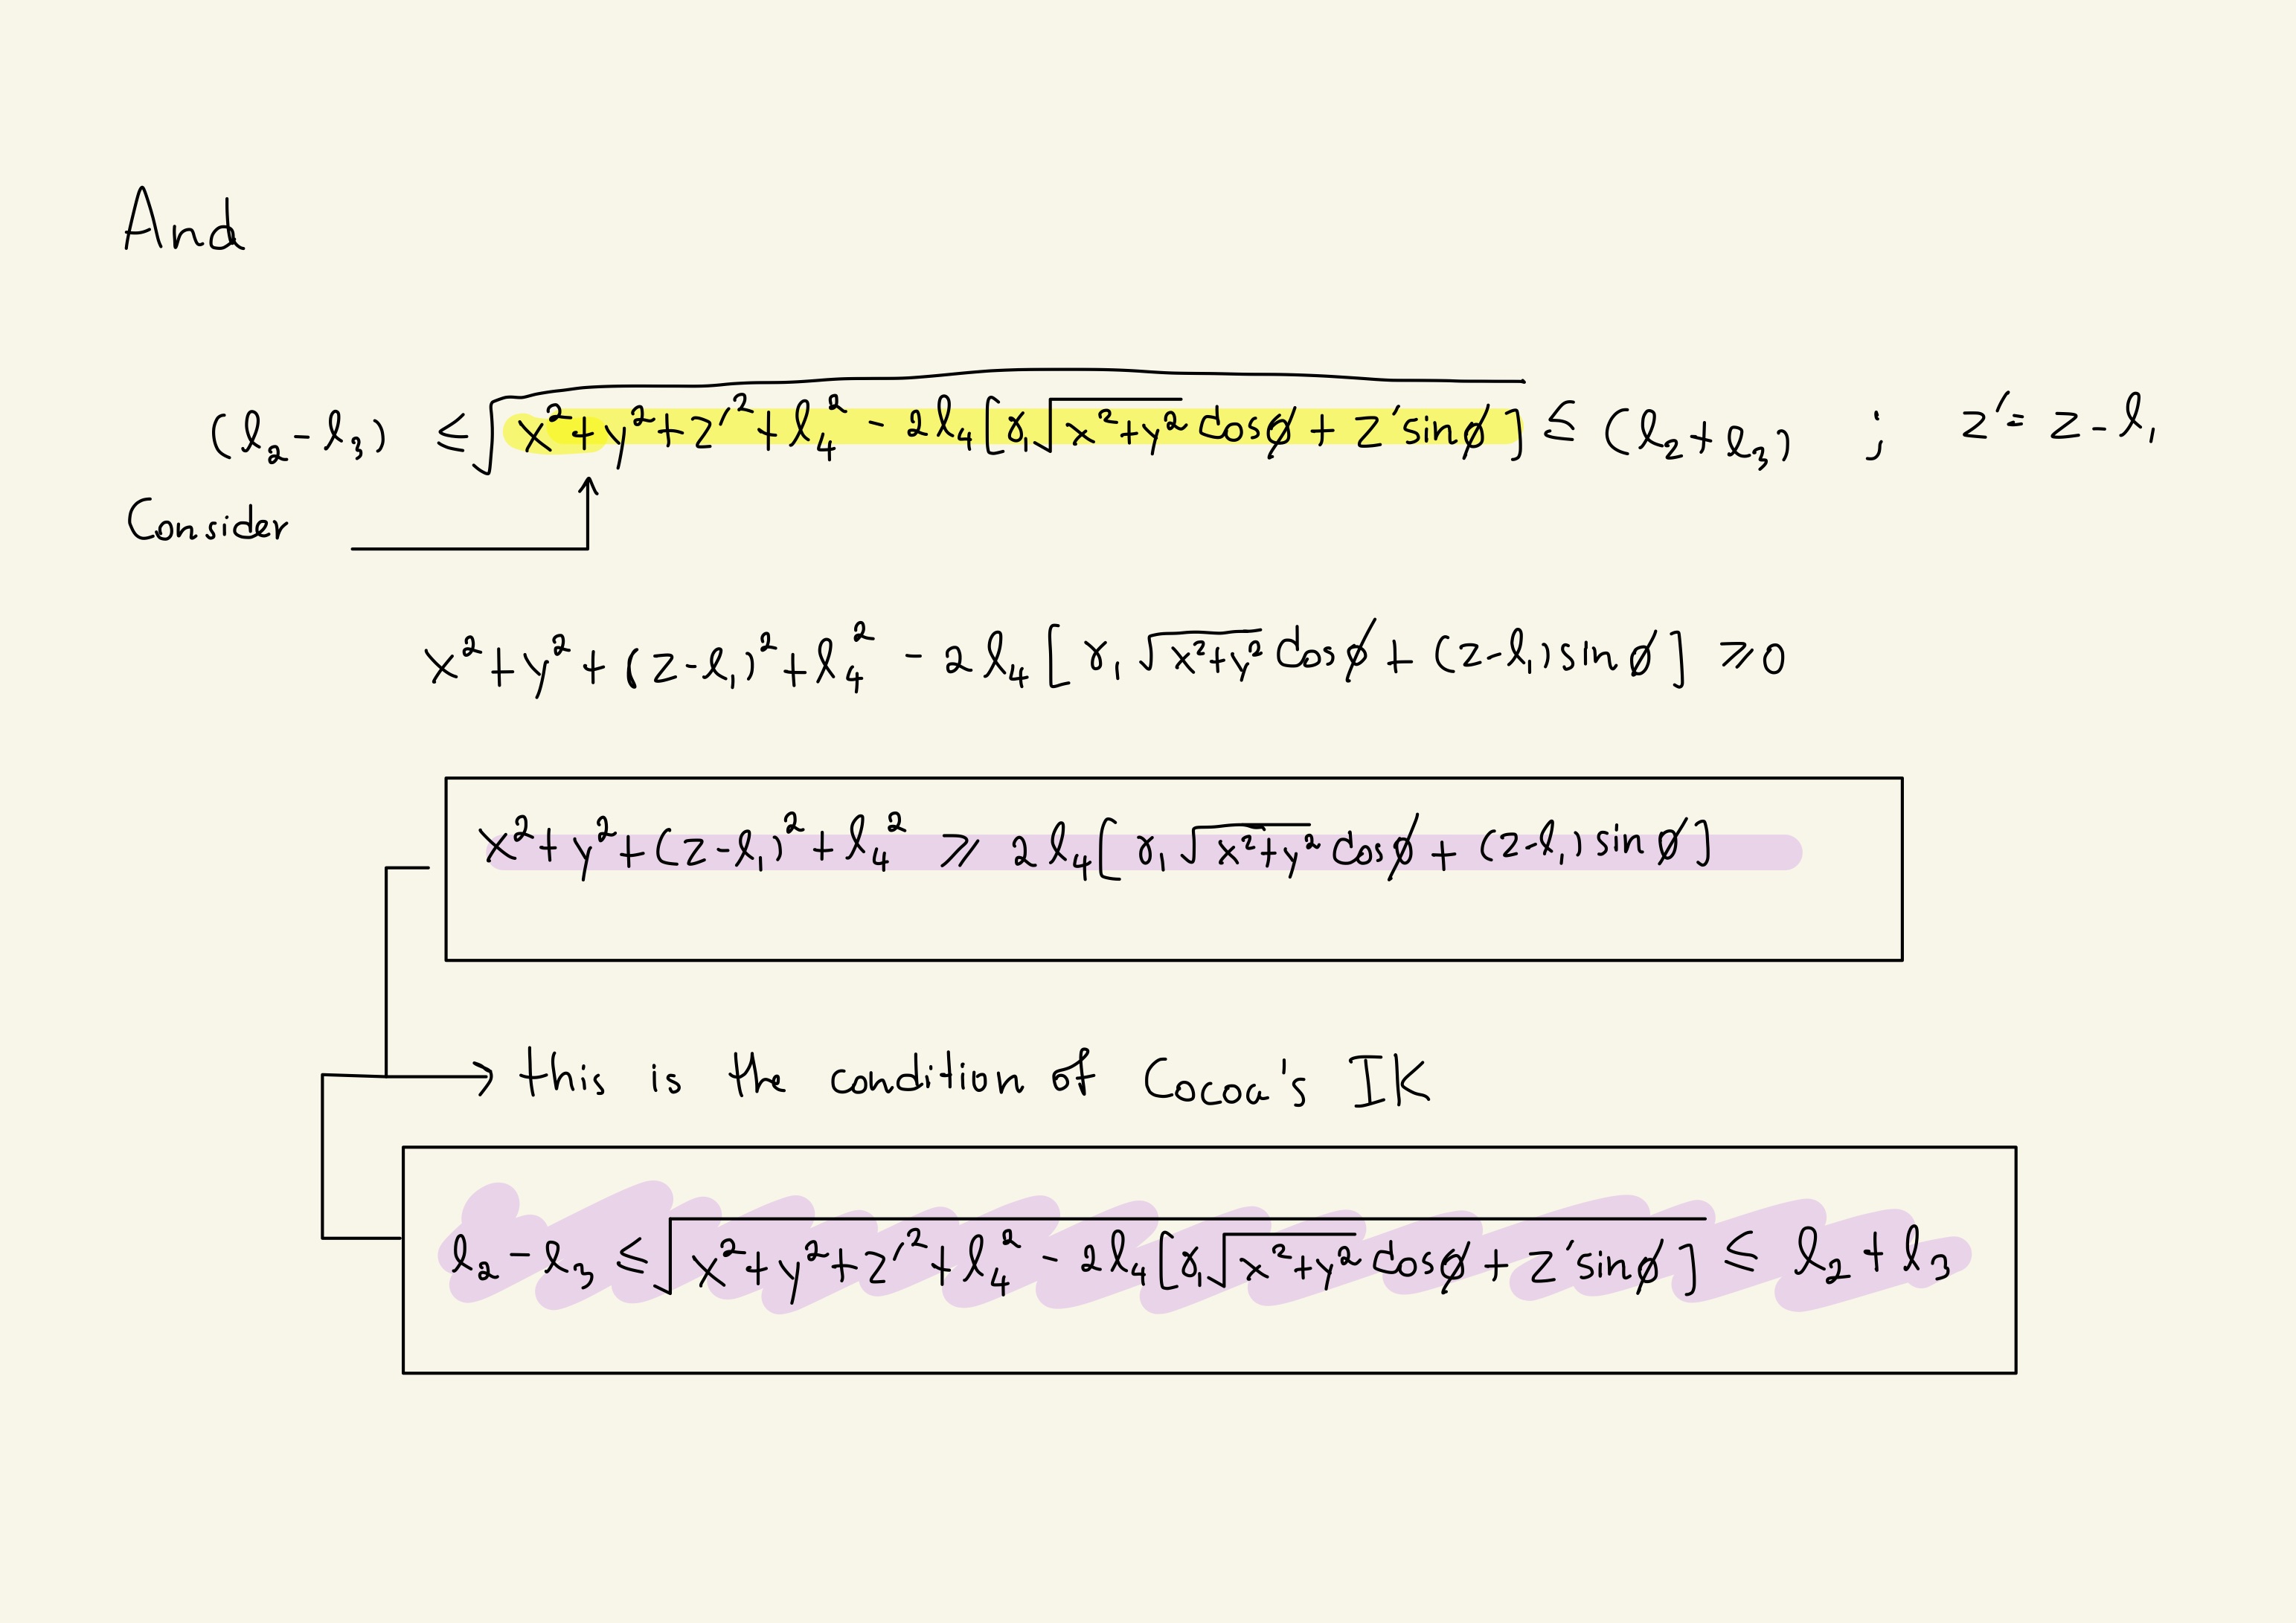 And
(l₂ - l₃) ≤ √(x² + y² + z′² + l₄² - 2l₄[γ₁√(x²+y²) cosϕ + z′sinϕ]) ≤ (l₂ + l₃) ; z′ = z - l₁
Consider
x² + y² + (z - l₁)² + l₄² - 2l₄[γ₁√(x²+y²) cosϕ + (z - l₁)sinϕ] ⩾ 0
x² + y² + (z - l₁)² + l₄² ⩾ 2l₄[γ₁√(x²+y²) cosϕ + (z - l₁)sinϕ]
this is the condition of Cocoa's IK
l₂ - l₃ ≤ √(x² + y² + z′² + l₄² - 2l₄[γ₁√(x²+y²) cosϕ + z′sinϕ]) ≤ l₂ + l₃